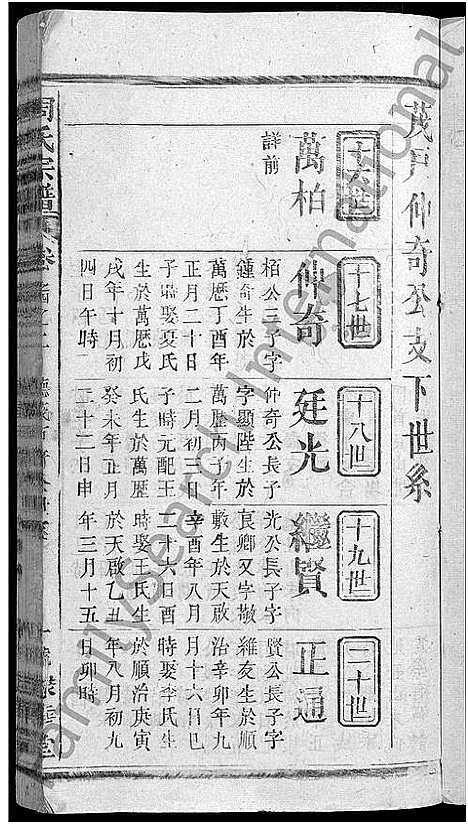 茂戶仲奇公支下世系
十六世
萬柏
詳前
十七世
仲奇
栢公三子字
鍾奇生於
萬歷丁酉年
正月二十日
子時娶夏氏
生於萬歷戊
戌年十月初
四日午時
十八世
廷光
仲奇公長子
字顯陛生於
萬歷丙子年
二月初三日
子時元配王
氏生於萬歷
癸未年正月
二十二日申
十九世
繼賢
光公長子字
良卿又字敬
敷生於天啟
辛酉年八月
二十六日酉
時娶王氏生
於天啟乙丑
年三月十五
二十世
正通
賢公長子字
維友生於順
治辛卯年九
月十六日巳
時娶李氏生
於順治庚寅
年八月初九
日卯時
周氏宗譜
FamilySearch International